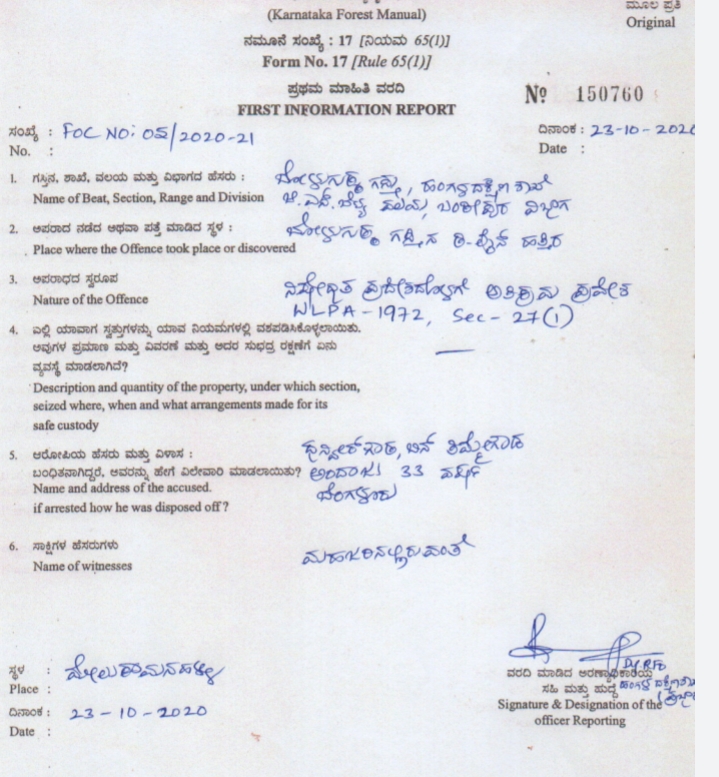 (Karnataka Forest Manual)
ಮೂಲ ಪ್ರತಿ
Original
ನಮೂನೆ ಸಂಖ್ಯೆ : 17 [ನಿಯಮ 65(1)]
Form No. 17 [Rule 65(1)]
ಪ್ರಥಮ ಮಾಹಿತಿ ವರದಿ
FIRST INFORMATION REPORT
Nº 150760
ಸಂಖ್ಯೆ : FOC NO: 05/2020-21
No. :
ದಿನಾಂಕ : 23-10-2020
Date :
1. ಗಸ್ತಿನ, ಶಾಖೆ, ವಲಯ ಮತ್ತು ವಿಭಾಗದ ಹೆಸರು :
Name of Beat, Section, Range and Division
ಗಸ್ತು, ಹಂಗಳ ದಕ್ಷಿಣ ಶಾಖೆ
ವಲಯ, ಬಂಡೀಪುರ ವಿಭಾಗ
2. ಅಪರಾದ ನಡೆದ ಅಥವಾ ಪತ್ತೆ ಮಾಡಿದ ಸ್ಥಳ :
Place where the Offence took place or discovered
ಗಸ್ತಿನ ಡಿ-ಲೈನ್ ಹತ್ತಿರ
3. ಅಪರಾಧದ ಸ್ವರೂಪ
Nature of the Offence
ನಿಷೇಧಿತ ಪ್ರದೇಶದೊಳಗೆ ಅತಿಕ್ರಮ ಪ್ರವೇಶ
WLPA-1972, Sec-27(1)
4. ಎಲ್ಲಿ ಯಾವಾಗ ಸ್ವತ್ತುಗಳನ್ನು ಯಾವ ನಿಯಮಗಳಲ್ಲಿ ವಶಪಡಿಸಿಕೊಳ್ಳಲಾಯಿತು.
ಅವುಗಳ ಪ್ರಮಾಣ ಮತ್ತು ವಿವರಣೆ ಮತ್ತು ಅದರ ಸುಭದ್ರ ರಕ್ಷಣೆಗೆ ಏನು
ವ್ಯವಸ್ಥೆ ಮಾಡಲಾಗಿದೆ?
Description and quantity of the property, under which section,
seized where, when and what arrangements made for its
safe custody
5. ಆರೋಪಿಯ ಹೆಸರು ಮತ್ತು ವಿಳಾಸ :
ಬಂಧಿತನಾಗಿದ್ದರೆ, ಅವರನ್ನು ಹೇಗೆ ವಿಲೇವಾರಿ ಮಾಡಲಾಯಿತು?
Name and address of the accused.
if arrested how he was disposed off ?
ಬಿನ್ ತಿಮ್ಮೇಗೌಡ
ಅಂದಾಜು 33 ವರ್ಷ
ಬೆಂಗಳೂರು
6. ಸಾಕ್ಷಿಗಳ ಹೆಸರುಗಳು
Name of witnesses
ಮಹಜರಿನಲ್ಲಿರುವಂತೆ
ಸ್ಥಳ :
Place :
ದಿನಾಂಕ : 23-10-2020
Date :
Dy.RFO
ವರದಿ ಮಾಡಿದ ಅರಣ್ಯಾಧಿಕಾರಿಯ
ಸಹಿ ಮತ್ತು ಹುದ್ದೆ
Signature & Designation of the
officer Reporting